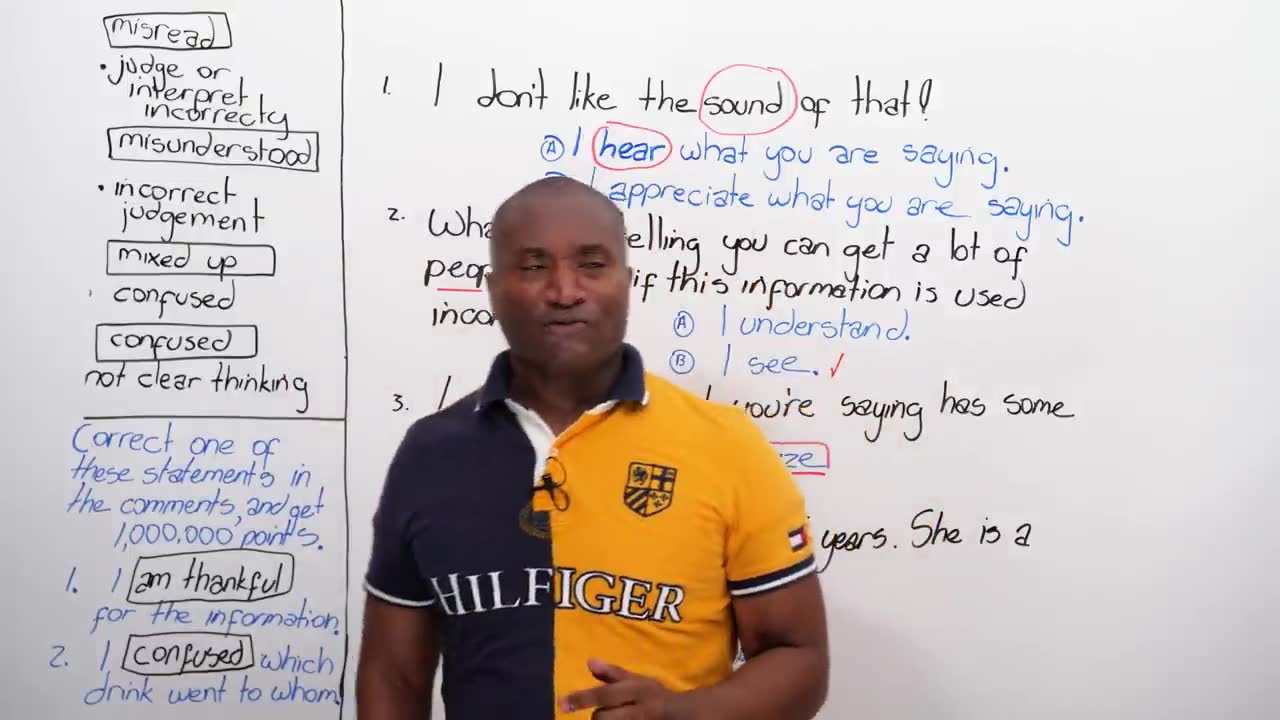 misread
• judge or
interpret
incorrecty
misunderstood
• incorrect
judgement
mixed up
confused
confused
not clear thinking
Correct one of
these statements in
the comments, and get
1,000,000 points.
1. I am thankful
for the information.
2. I confused which
drink went to whom.
1. I don't like the sound of that!
A I hear what you are saying.
I appreciate what you are saying.
2. elling you can get a lot of
if this information is used
A I understand.
B I see. ✓
3. I you're saying has some
years. She is a
HILFIGER